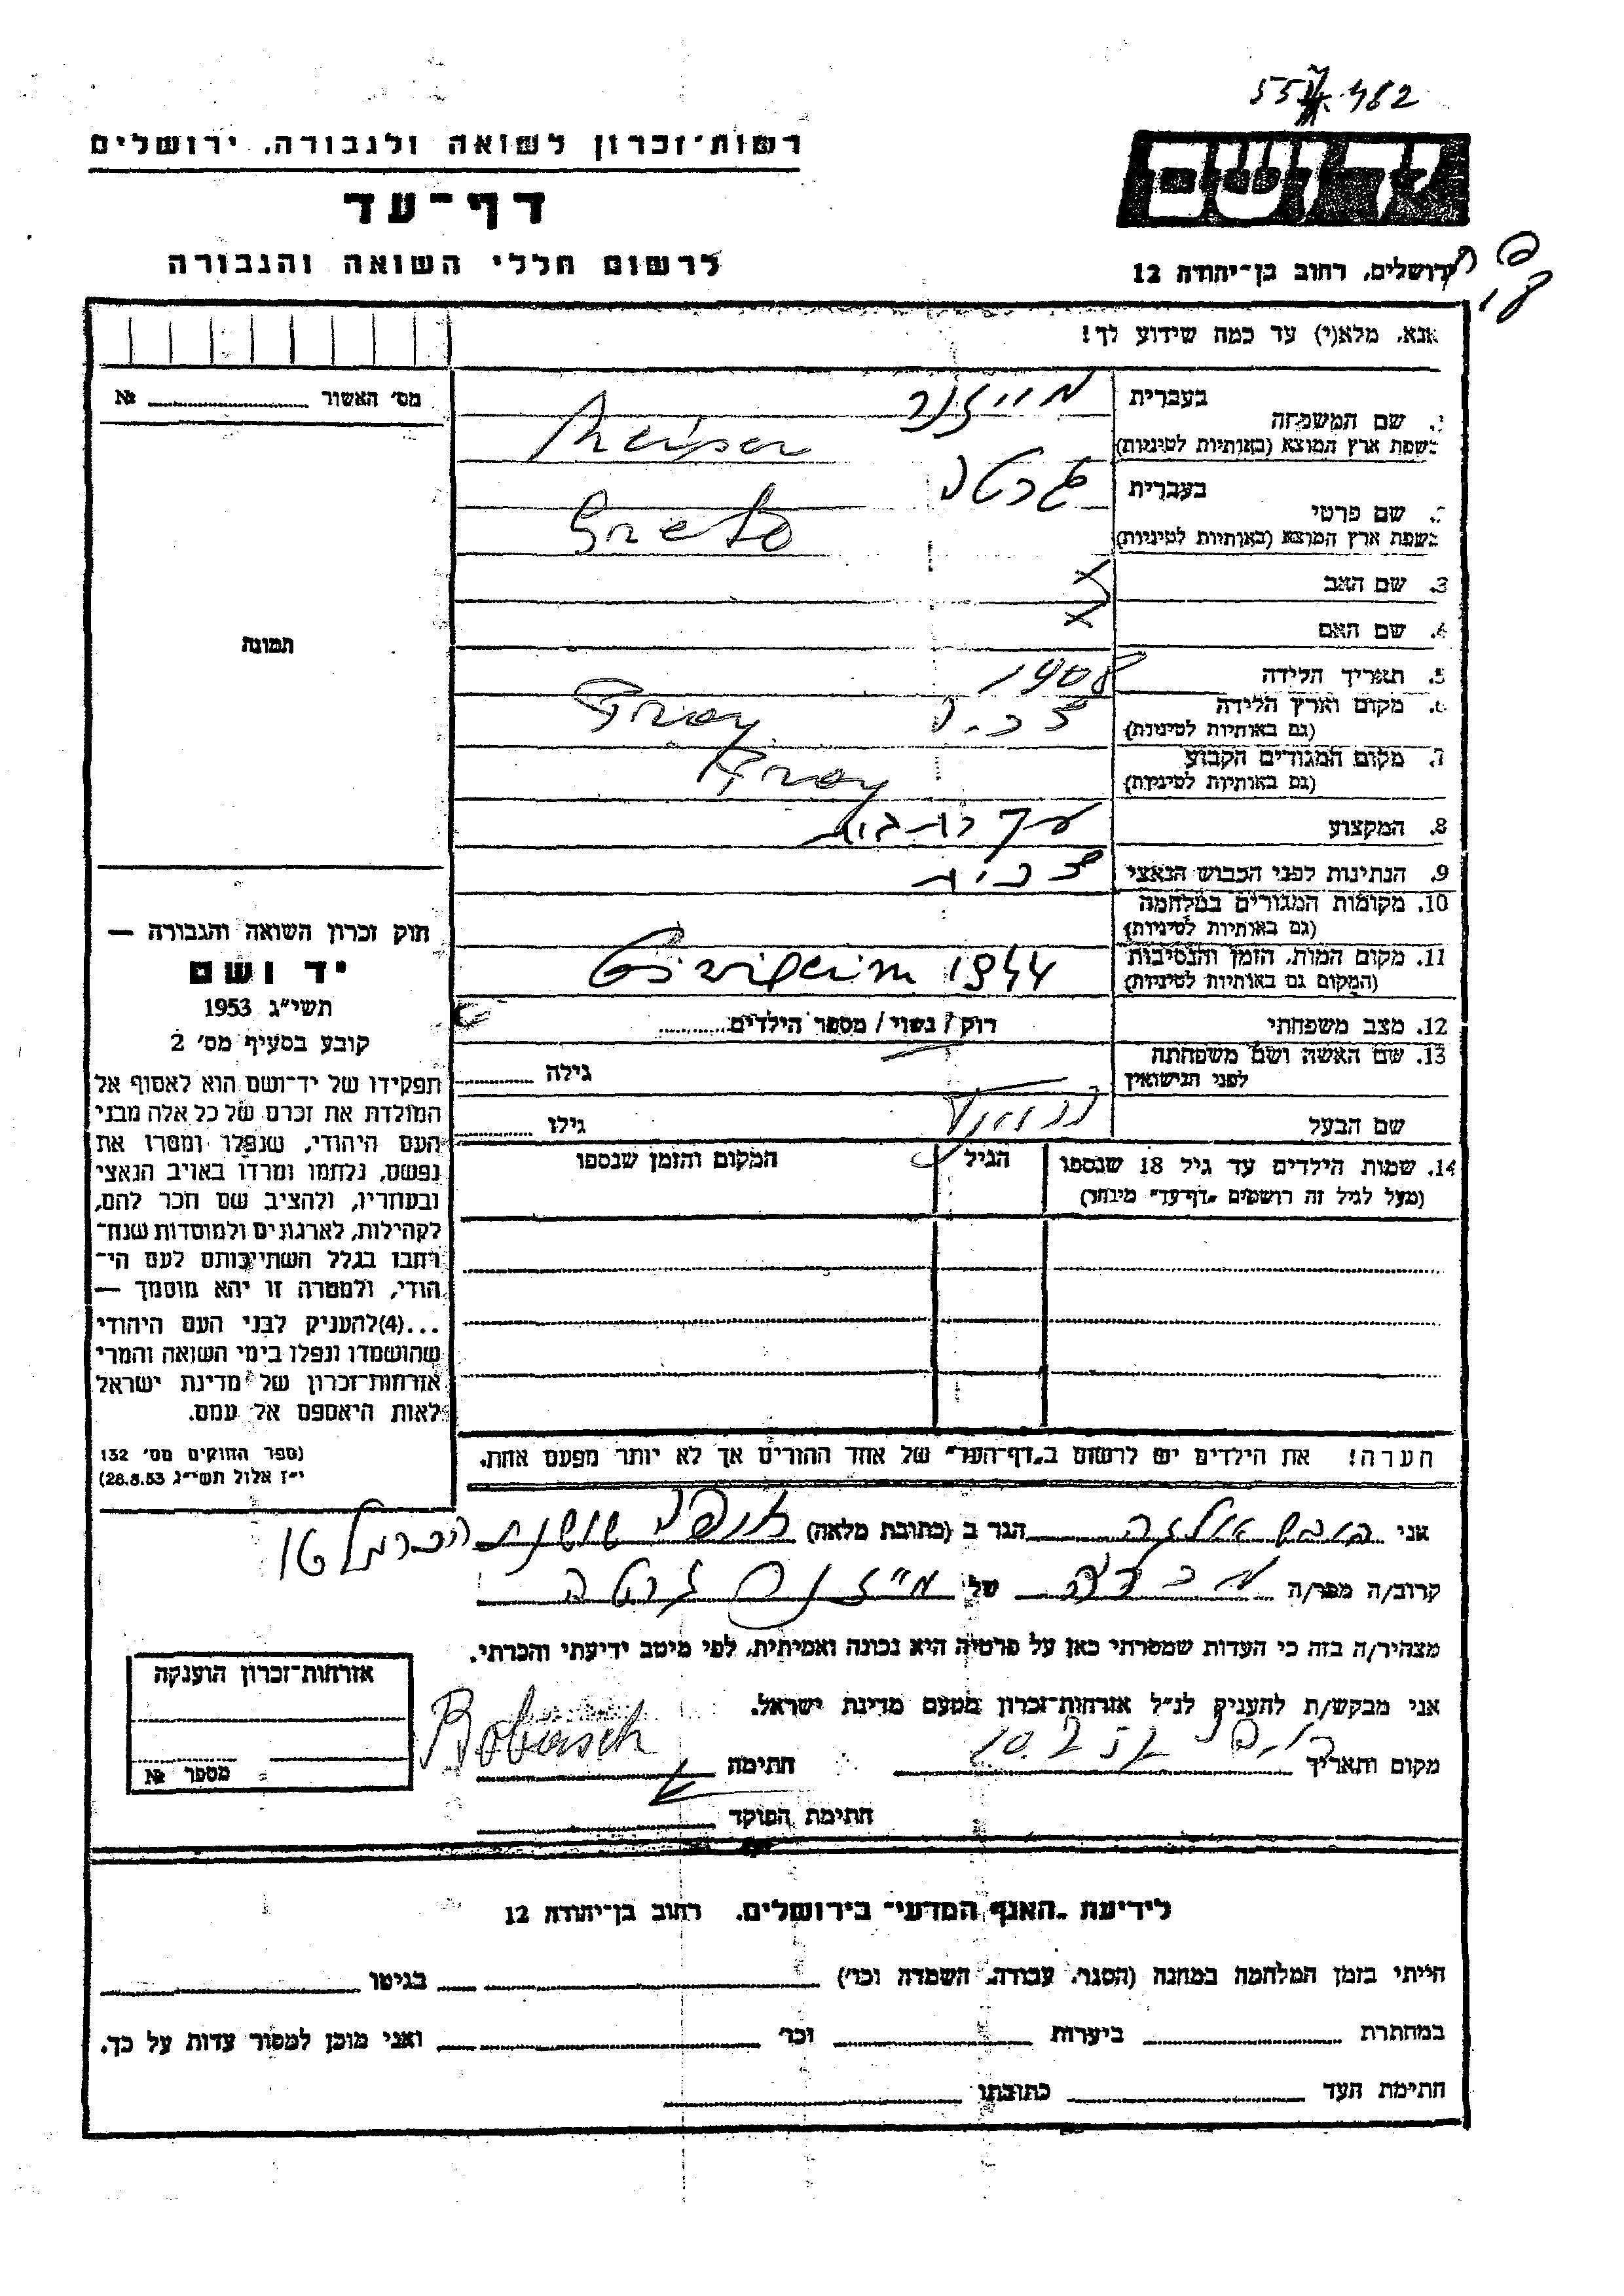 רשות־זכרון לשואה ולגבורה, ירושלים
דף־עד
לרשום חללי השואה והגבורה
ידושם
ירושלים, רחוב בן־יהודה 12
אנא, מלא(י) עד כמה שידוע לך!
מס׳ האשור № 
תמונה
1. שם המשפחה בעברית מייזנר
בשפת ארץ המוצא (באותיות לטיניות) Meisner
2. שם פרטי בעברית גרטה
בשפת ארץ המוצא (באותיות לטיניות) Greta
3. שם האב
4. שם האם
5. תאריך הלידה 1908
6. מקום וארץ הלידה
(גם באותיות לטיניות)
7. מקום המגורים הקבוע
(גם באותיות לטיניות)
8. המקצוע עקרת בית
9. הנתינות לפני הכבוש הנאצי
10. מקומות המגורים במלחמה
(גם באותיות לטיניות)
11. מקום המות, הזמן והנסיבות
(המקום גם באותיות לטיניות) 1944
12. מצב משפחתי רוק / נשוי / מספר הילדים
13. שם האשה ושם משפחתה
לפני הנישואין גילה
שם הבעל גילו
14. שמות הילדים עד גיל 18 שנספו הגיל המקום והזמן שנספו
(מעל לגיל זה רושמים „דף־עד” מיוחד)
חוק זכרון השואה והגבורה —
יד ושם
תשי״ג 1953
קובע בסעיף מס׳ 2
תפקידו של יד־ושם הוא לאסוף אל
המולדת את זכרם של כל אלה מבני
העם היהודי, שנפלו ומסרו את
נפשם, נלחמו ומרדו באויב הנאצי
ובעוזריו, ולהציב שם וזכר להם,
לקהילות, לארגונים ולמוסדות שנח־
רבו בגלל השתייכותם לעם הי־
הודי, ולמטרה זו יהא מוסמך —
...(4)להעניק לבני העם היהודי
שהושמדו ונפלו בימי השואה והמרי
אזרחות־זכרון של מדינת ישראל
לאות היאספם אל עמם.
(ספר החוקים מס׳ 132
י״ז אלול תשי״ג 28.8.53)
הערה! את הילדים יש לרשום ב„דף־העד” של אחד ההורים אך לא יותר מפעם אחת.
אני הגר ב (כתובת מלאה)
קרוב/ה מכר/ה של מייזנר גרטה
מצהיר/ה בזה כי העדות שמסרתי כאן על פרטיה היא נכונה ואמיתית, לפי מיטב ידיעתי והכרתי.
אני מבקש/ת להעניק לנ״ל אזרחות־זכרון מטעם מדינת ישראל.
מקום ותאריך חתימה
חתימת הפוקד
אזרחות־זכרון הוענקה
מספר №
לידיעת „האגף המדעי” בירושלים, רחוב בן־יהודה 12
הייתי בזמן המלחמה במחנה (הסגר, עבודה, השמדה וכו׳) בגיטו
במחתרת ביערות וכו׳ ואני מוכן למסור עדות על כך.
חתימת העד כתובתו